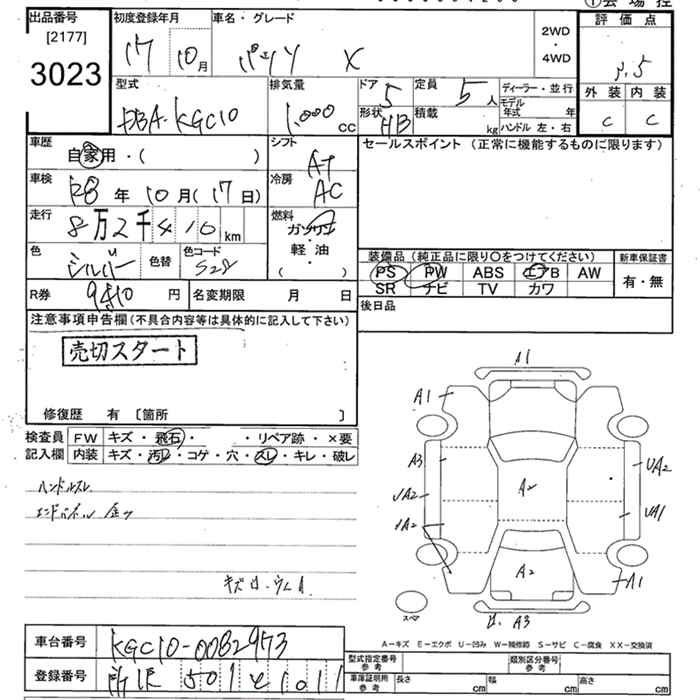 ①会場控
出品番号
[2177]
3023
初度登録年月
17 10月
車名・グレード
パッソ X
2WD
・
4WD
評価点
3.5
外装 内装
C C
型式
DBA-KGC10
排気量
1,000 cc
ドア 5
形状 HB
定員 5人
積載 kg
ディーラー・並行
モデル年式 年
ハンドル 左・右
車歴
自家用・( )
シフト
AT
セールスポイント (正常に機能するものに限ります)
車検
R8年10月(17日)
冷房
AC
走行
8万2千410km
燃料
ガソリン
・
軽油
( )
色
シルバー
色替
色コード
S28
装備品 (純正品に限り○をつけてください)
PS PW ABS エアB AW
SR ナビ TV カワ
新車保証書
有・無
R券 円
名変期限 月 日
後日品
注意事項申告欄(不具合内容等は具体的に記入して下さい)
売切スタート
修復歴 有 〔箇所 〕
検査員記入欄
FW キズ・飛石・ ・リペア跡・×要
内装 キズ・汚レ・コゲ・穴・スレ・キレ・破レ
ハンドルスレ
A1
A1
A3
UA2
A2
UA2
UA1
A2
A1
A3
スペア
A-キズ E-エクボ U-凹み W-補修跡 S-サビ C-腐食 XX-交換済
車台番号
KGC10-0082973
登録番号
501 1011
型式指定番号
参考
類別区分番号
参考
車庫証明所
参考
長さ cm
幅 cm
高さ cm